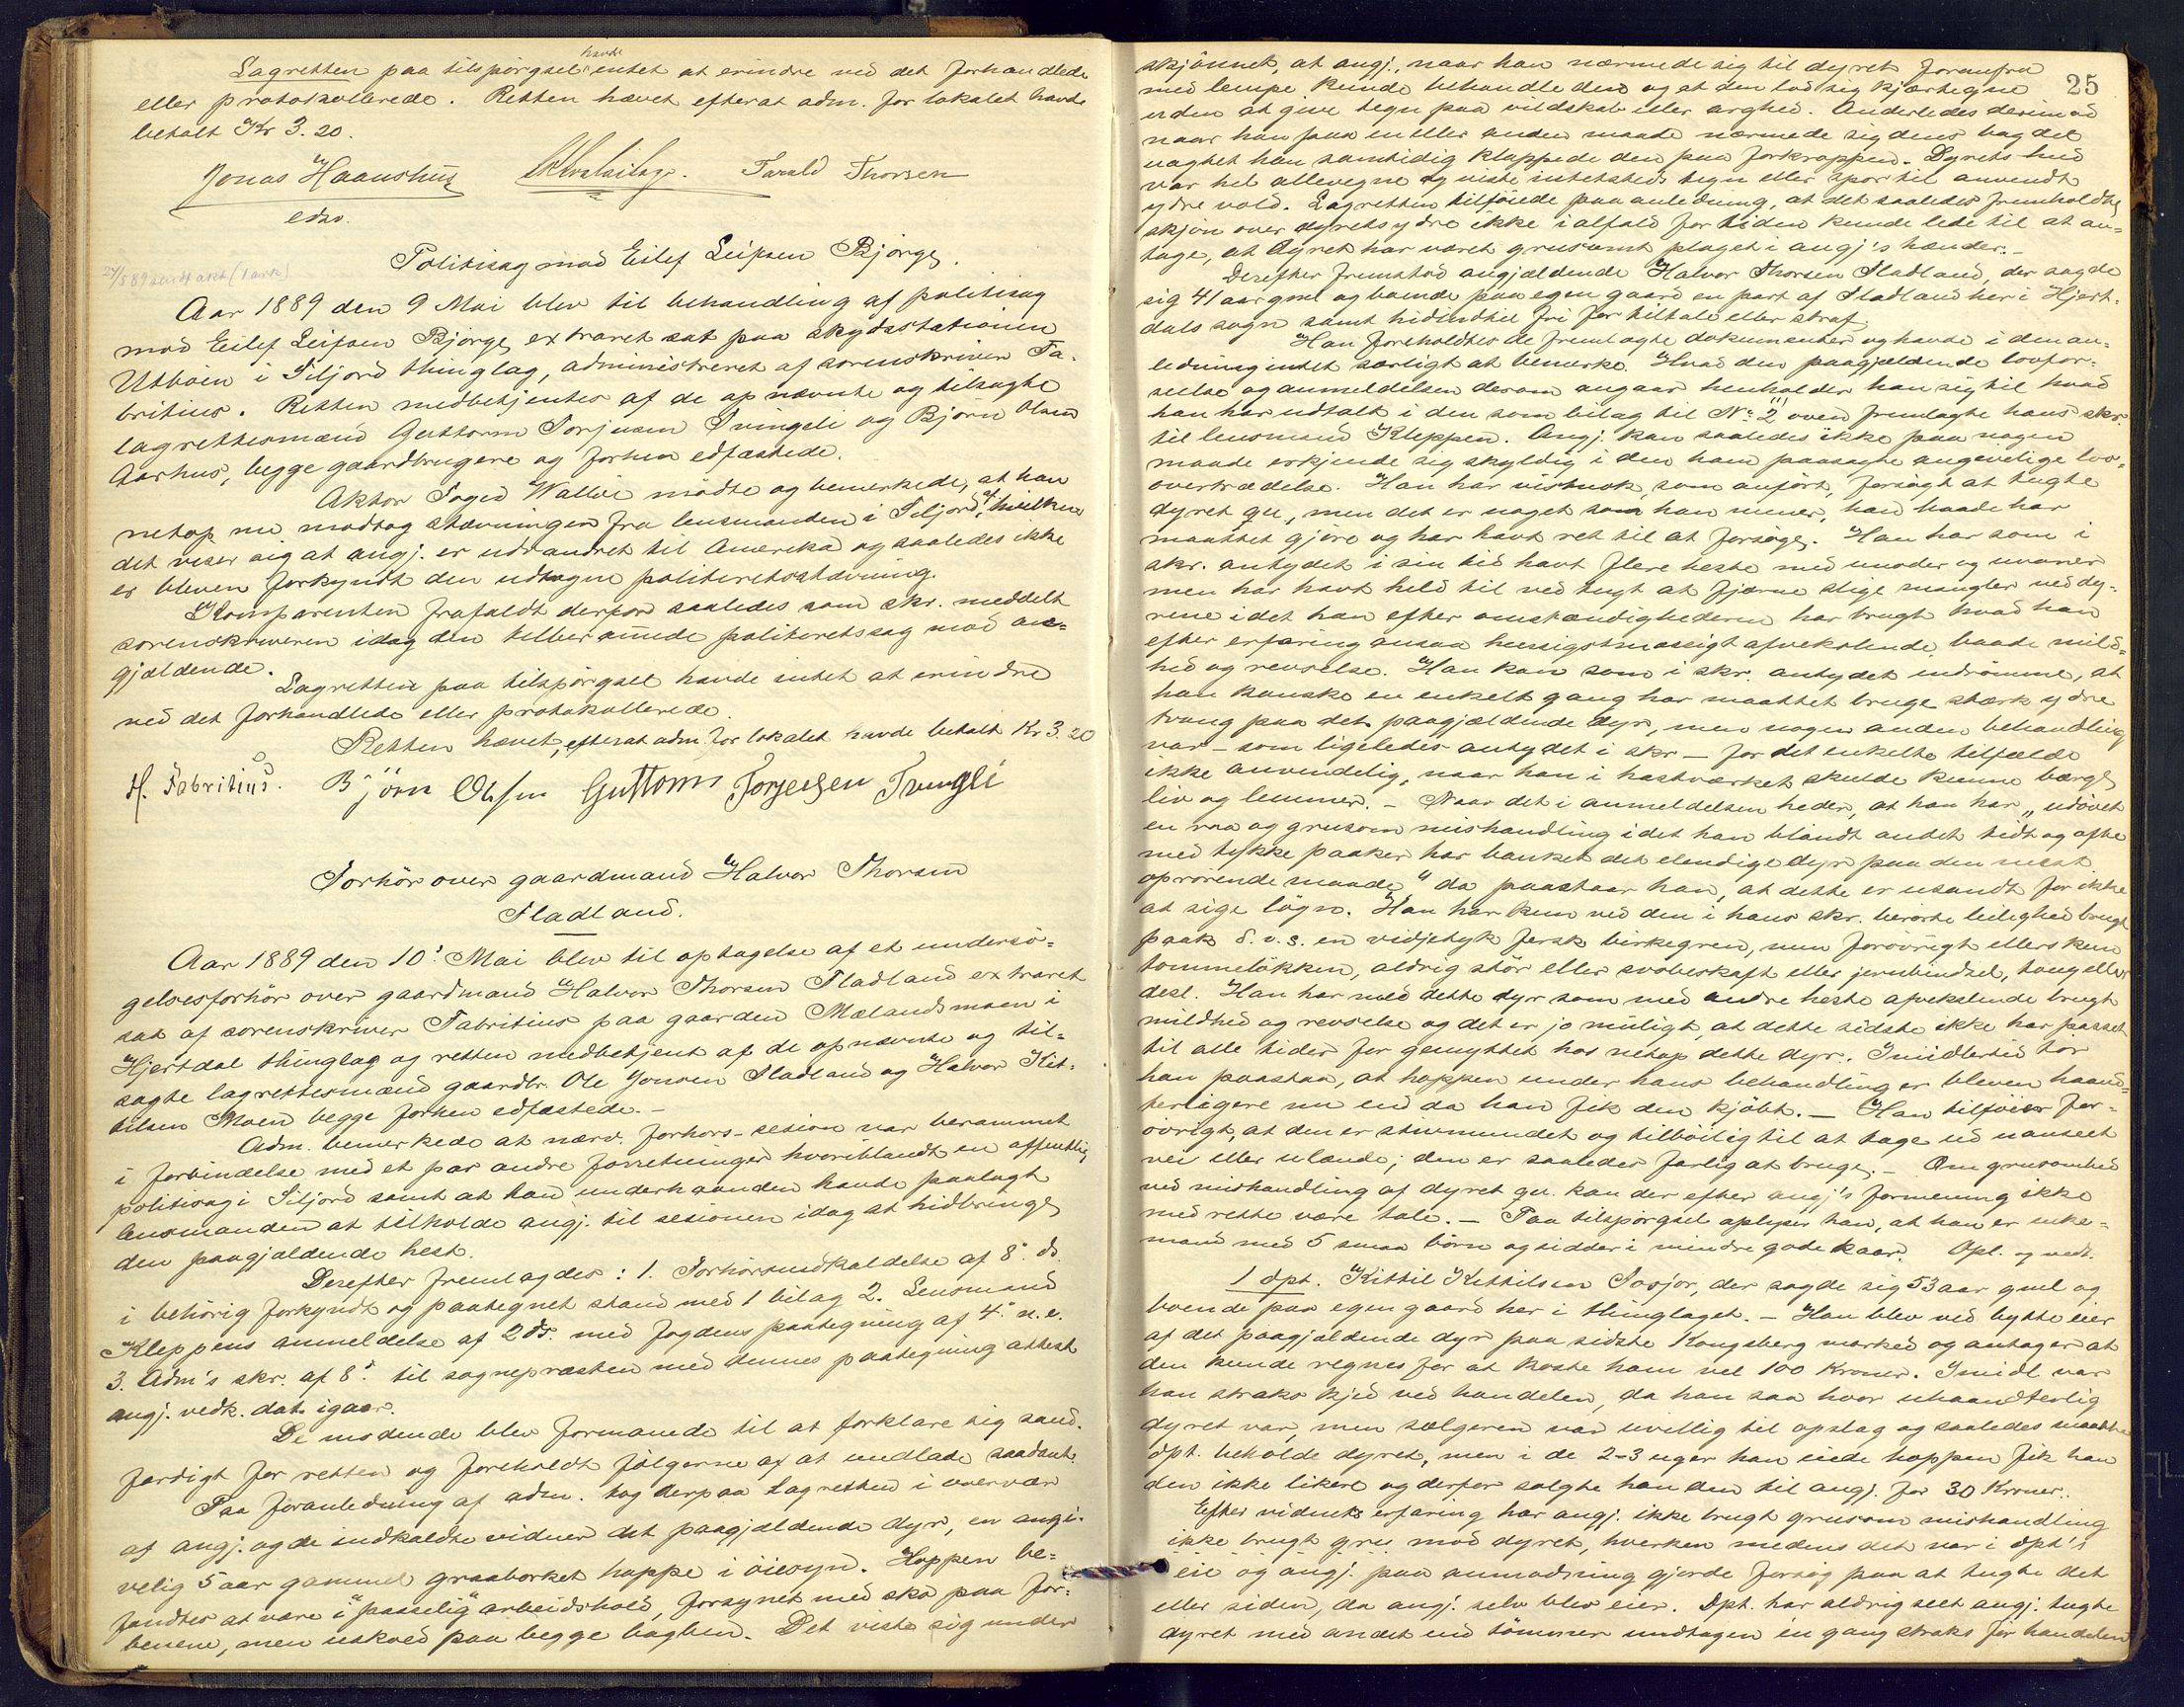 havde
Lagretten paa tilspørgsel intet at erindre ved det forhandlede
eller protokollerede. Retten hævet efterat adm. for lokalet havde
betalt Kr 3.20.
Jonas Haanshus Tarald Thorsen
edsv.
Politisag mod Eilef Leifsen Bjørge.
Aar 1889 den 9 Mai blev til behandling af politisag
mod Eilef Leifsen Bjørge extraret sat paa skydsstationen
Utbøen i Siljord thinglag, administreret af sorenskriver Fa-
britius. Retten medbetjentes af de opnævnte og tilsagte
lagrettesmænd Guttorm Torjusen Tvingeli og Bjørn Olsen
Aarhus, begge gaardbrugere og forhen edfæstede.
Aktor Foged Walløe mødte og bemerkede, at han
netop nu modtog stævningen fra lensmanden i Siljord, af hvilken
det viser sig at angj. er udvandret til Amerika og saaledes ikke
er bleven forkyndt den udtagne politiretsstævning.
Komparenten frafaldt derfor saaledes som skr. meddelt
sorenskriveren idag den tilberammede politiretssag mod an-
gjældende.
Lagretten paa tilspørgsel havde intet at erindre
ved det forhandlede eller protokollerede.
Retten hævet, efterat adm. for lokalet havde betalt Kr 3.20
H. Fabritius. Bjørn Olsen Guttorm Torjussen Tvingli
Forhør over gaardmand Halvor Thorsen
Fladland.
Aar 1889 den 10: Mai blev til optagelse af et undersø-
gelsesforhør over gaardmand Halvor Thorsen Fladland extraret
sat af sorenskriver Fabritius paa gaarden Mælandsmoen i
Hjertdal thinglag og retten medbetjent af de opnævnte og til-
sagte lagrettesmænd gaardbr. Ole Jonsen Fladland og Halvor Kit-
tilsen Moen begge forhen edfæstede.-
Adm. bemerkede at nærv. forhørs-sesion var berammet
i forbindelse med et par andre forretninger hvoriblandt en offentlig
politisag i Siljord samt at han underhaanden havde paalagt
lensmanden at tilholde angj. til sesionen idag at hidbringe
den paagjældende hest.
Derefter fremlagdes: 1. Forhørsindkaldelse af 8: ds.
i behørig forkyndt og paategnet stand med 1 bilag 2. Lensmand
Kleppens anmeldelse af 2 ds. med fogdens paategning af 4: n.e.
3. Adm's skr. af 8: til sognepræsten med dennes paategning attest
angj. vedk. dat. igaar.
De mødende blev formanede til at forklare sig sand-
færdigt for retten og foreholdt følgerne af at undlade saadant.
Paa foranledning af adm. tog derpaa lagretten i overvær
af angj. og de indkaldte vidner det paagjældende dyr, en angi-
velig 5 aar gammel graaborket hoppe i øiesyn. Hoppen be-
fandtes at være i "passelig" arbeidshold, forsynet med sko paa for-
benene, men uskoed paa begge bagben. Det viste sig under
25
skjønnet, at angj., naar han nærmede sig til dyret foranfra
med lempe kunde behandle den og at den lod sig kjærtegne
uden at give tegn paa vildskab eller arghed. Anderledes derimod
naar han paa en eller anden maade nærmede sig dens bagdel
uagtet han samtidig klappede den paa forkroppen. Dyrets hud
var hel allevegne og viste intetsteds tegn eller spor til anvendt
ydre vold. Lagretten tilføiede paa anledning, at det saaledes fremholdte
skjøn over dyrets ydre ikke i alfald for tiden kunde lede til at an-
tage, at dyret har været grusomt plaget i angj's hænder.-
Derefter fremstod angjældende Halvor Thorsen Fladland, der sagde
sig 41 aar gml og boende paa egen gaard en part af Fladland her i Hjert-
dals sogn samt hidindtil fri for tiltale eller straf.
Han foreholdtes de fremlagte dokumenter og havde i den an-
ledning intet særligt at bemerke. Hvad den paagjældende lovfor-
seelse og anmeldelsen derom angaar henholder han sig til hvad
han har udtalt i den som bilag til No 2 oven fremlagte hans skr.
til lensmand Kleppen. Angj. kan saaledes ikke paa nogen
maade erkjende sig skyldig i den ham paasagte angivelige lov-
overtrædelse. Han har vistnok, som anført, forsøgt at tugte
dyret qu., men det er noget som han mener, han baade har
maattet gjøre og har havt ret til at forsøge. Han har som i
skr. antydet i sin tid havt flere heste med unoder og uvaner
men har havt held til ved tugt at fjærne slige mangler ved dy-
rene idet han efter omstændighederne har brugt hvad han
efter erfaring ansaa hensigtsmæssigt afvekslende baade mild-
hed og revselse. Han kan som i skr. antydet indrømme, at
han kanske en enkelt gang har maattet bruge stærk ydre
tvang paa det paagjældende dyr, men nogen anden behandling
var - som ligeledes antydet i skr - for det enkelte tilfælde
ikke anvendelig, naar han i hastværket skulde kunne bærge
liv og lemmer. - Naar det i anmeldelsen heder, at han har „udøvet
en raa og grusom mishandling idet han blandt andet tidt og ofte
med tykke paaker har banket det elendige dyr paa den mest
oprørende maade" da paastaar han, at dette er usandt for ikke
at sige løgn. Han har kun ved den i hans skr. berørte leilighed brugt
paak d.v.s. en vidjetyk fersk birkegren, men forøvrigt ellers kun
tømmeløkken, aldrig stør eller svøbeskaft eller jernbindsel, toug eller
desl. Han har med dette dyr som med andre heste afvekslende brugt
mildhed og revselse og det er jo muligt, at dette sidste ikke har passet
til alle tider for gemyttet hos netop dette dyr. Imidlertid tør
han paastaa, at hoppen under hans behandling er bleven haand-
terligere nu end da han fik den kjøbt. - Han tilføier for-
øvrigt, at den er stivmundet og tilbøielig til at tage ud uanseet
vei eller ulænde; den er saaledes farlig at bruge. - Om grusomhed
ved mishandling af dyret qu. kan der efter angj's formening ikke
med rette være tale. - Paa tilspørgsel oplyser han, at han er enke-
mand med 5 smaa børn og sidder i mindre gode kaar. Opl. og vedt.
1 dpt. Kittil Kittilsen , der sagde sig 53 aar gml og
boende paa egen gaard her i thinglaget. - Han blev ved bytte eier
af det paagjældende dyr paa sidste Kongsberg marked og antager at
den kunde regnes for at koste ham vel 100 Kroner. Imidl var
han straks kjed ved handelen, da han saa hvor uhaandterlig
dyret var, men sælgeren var uvillig til opslag og saaledes maatte
dpt. beholde dyret, men i de 2-3 uger han eiede hoppen fik han
den ikke likere og derfor solgte han den til angj. for 30 Kroner.
Efter vidnets erfaring har angj. ikke brugt grusom mishandling
ikke brugt gru mod dyret, hverken medens det var i dpt's
eie og angj. paa anmodning gjorde forsøg paa at tugte det
eller siden, da angj. selv blev eier. Dpt. har aldrig seet angj. tugte
dyret med andet end tømmer undtagen én gang straks før handelen